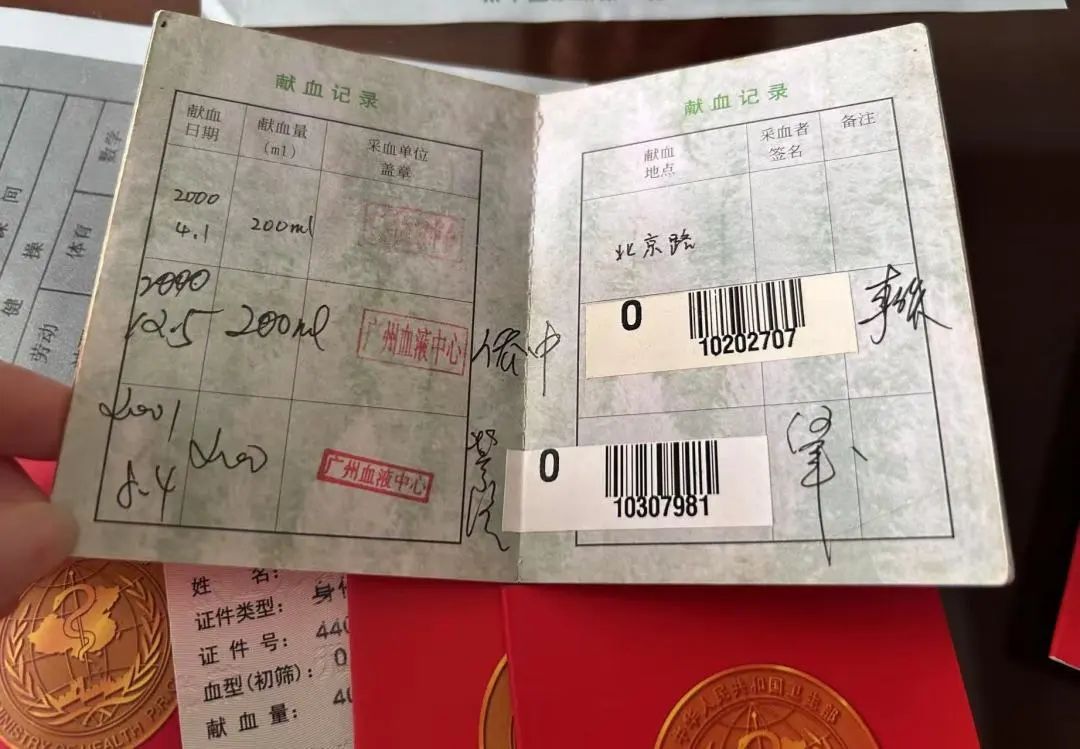 献血记录
献血日期
献血量(ml)
采血单位盖章
2000
4.1
200ml
2000
12.5
200ml
广州血液中心
2001
8.4
200
广州血液中心
献血记录
献血地点
采血者签名
备注
北京路
O
10202707
O
10307981
数学
体育
操
间
健
劳动
姓 名:
证件类型:
证 件 号: 440
血型(初筛): O
献 血 量: 40
MINISTRY OF HEALTH P.R.C
中华人民共和国卫生部